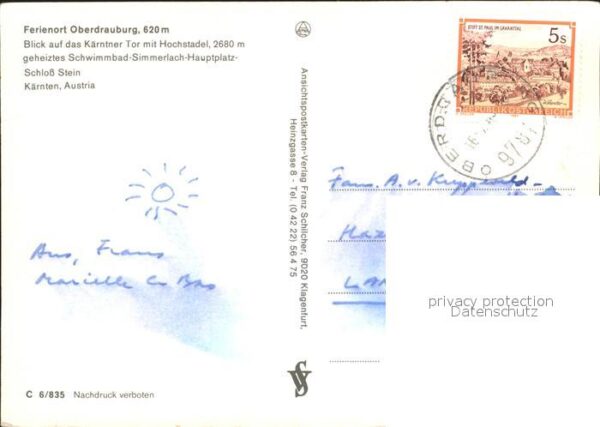 Ferienort Oberdrauburg, 620 m
Blick auf das Kärntner Tor mit Hochstadel, 2680 m
geheiztes Schwimmbad-Simmerlach-Hauptplatz-
Schloß Stein
Kärnten, Austria
Frans
Marielle
C 6/835 Nachdruck verboten
Ansichtspostkarten-Verlag Franz Schilcher, 9020 Klagenfurt,
Heinzgasse 8 - Tel. (0 42 22) 56 4 75
STIFT ST. PAUL IM LAVANTTAL
5 S
REPUBLIK ÖSTERREICH
9781
Fam. A. v.
privacy protection
Datenschutz